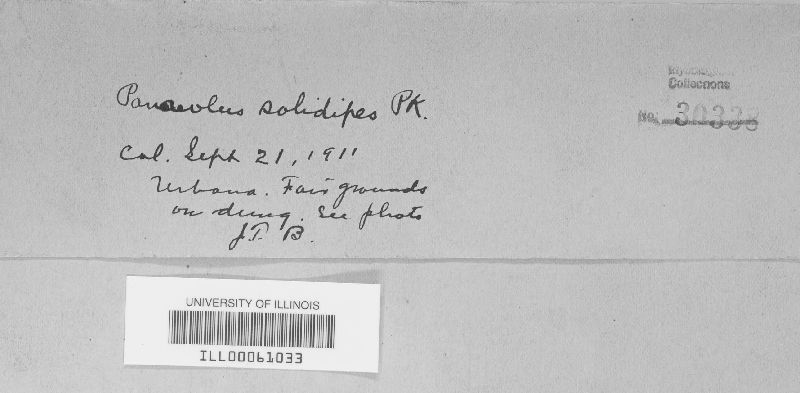 Panaeolus solidipes PK.
Col. Sept 21, 1911
Urbana. Fair grounds
on dung. See photo
J.T. B.
Mycological
Collections
No.
UNIVERSITY OF ILLINOIS
ILL00061033